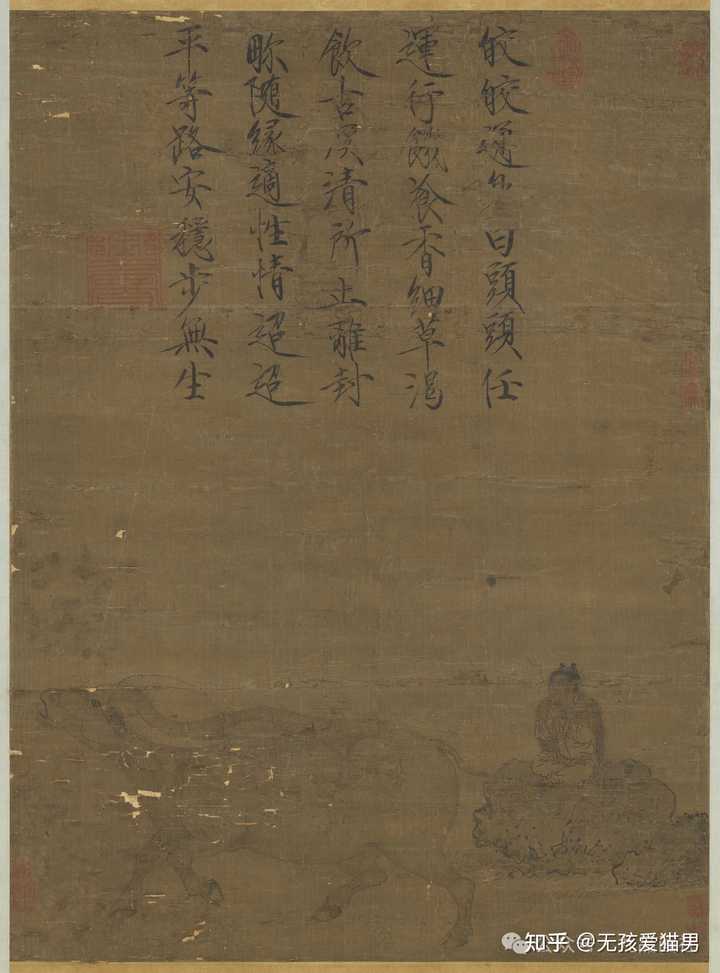 皎皎日頭頭任
運行饑飡香細草渴
飲古清所止離封
畛隨緣適性情迢迢
平等路安穩步無生
知乎 @无孩爱猫男